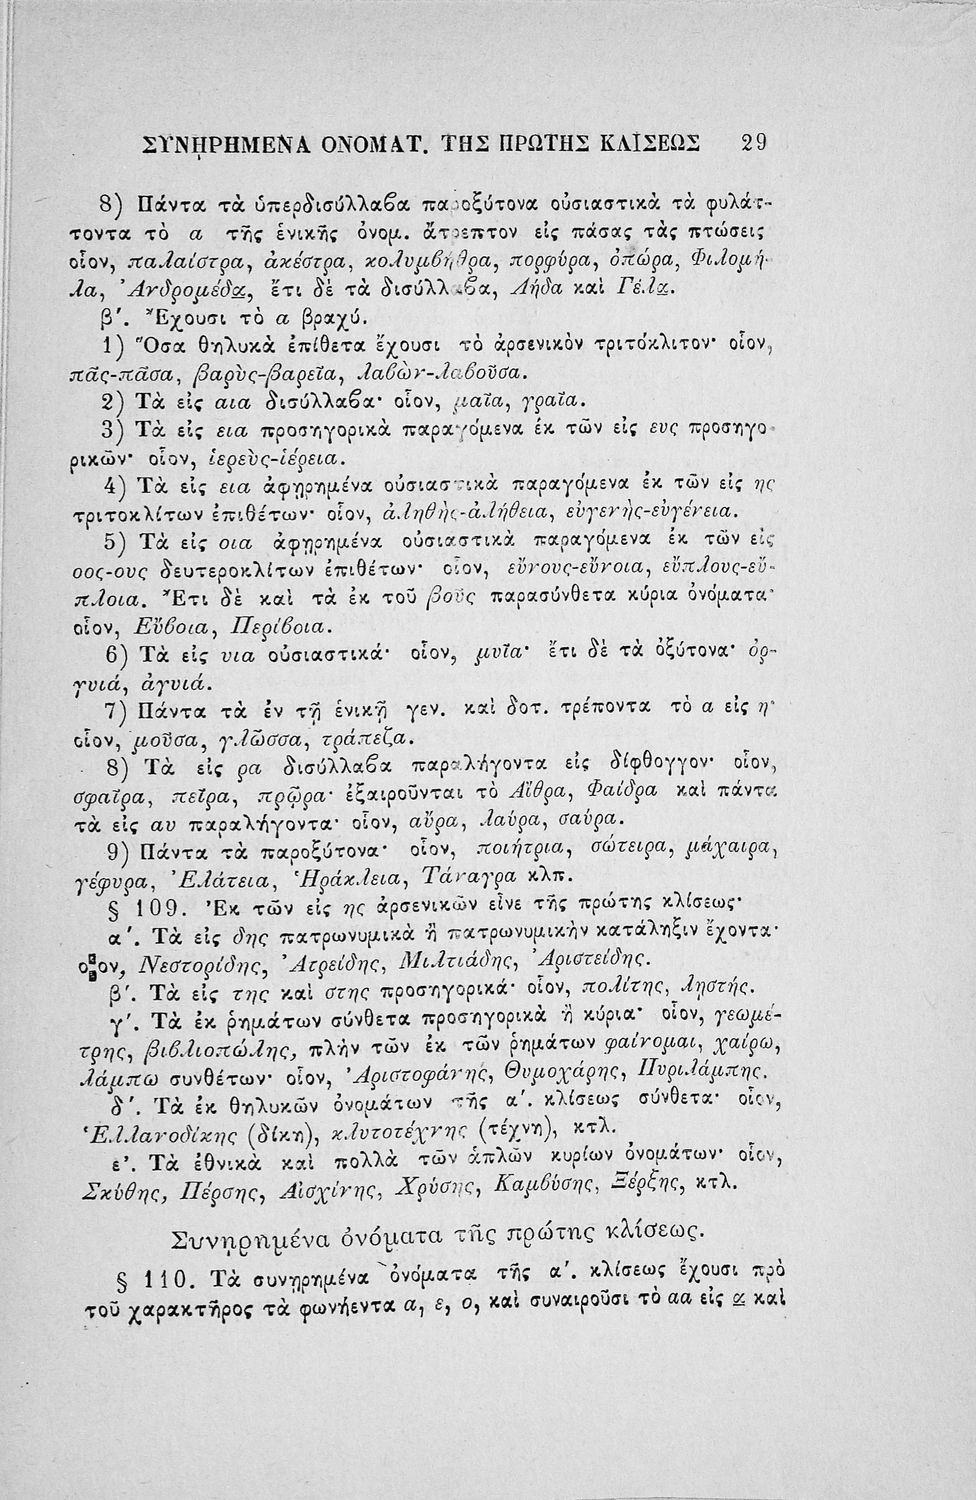 ΣΥΝῌΡΗΜΕΝΑ ΟΝΟΜΑΤ. ΤΗΣ ΠΡΩΤΗΣ ΚΛΙΣΕΩΣ 29
8) Πάντα τὰ ὑπερδισύλλαβα παροξύτονα οὐσιαστικὰ τὰ φυλάτ-
τοντα τὸ α τῆς ἑνικῆς ὀνομ. ἄτρεπτον εἰς πάσας τὰς πτώσεις
οἷον, παλαίστρα, ἀκέστρα, κολυμβήθρα, πορφύρα, ὀπώρα, Φιλομή-
λα, Ἀνδρομέδα, ἔτι δὲ τὰ δισύλλαβα, Λήδα καὶ Γέλα.
β΄. Ἔχουσι τὸ α βραχύ.
1) Ὅσα θηλυκὰ ἐπίθετα ἔχουσι τὸ ἀρσενικὸν τριτόκλιτον· οἷον,
πᾶς-πᾶσα, βαρὺς-βαρεῖα, λαβὼν-λαβοῦσα.
2) Τὰ εἰς αια δισύλλαβα· οἷον, μαῖα, γραῖα.
3) Τὰ εἰς εια προσηγορικὰ παραγόμενα ἐκ τῶν εἰς ευς προσηγο-
ρικῶν· οἷον, ἱερεὺς-ἱέρεια.
4) Τὰ εἰς εια ἀφῃρημένα οὐσιαστικὰ παραγόμενα ἐκ τῶν εἰς ης
τριτοκλίτων ἐπιθέτων· οἷον, ἀληθὴς-ἀλήθεια, εὐγενὴς-εὐγένεια.
5) Τὰ εἰς οια ἀφῃρημένα οὐσιαστικὰ παραγόμενα ἐκ τῶν εἰς
οος-ους δευτεροκλίτων ἐπιθέτων· οἷον, εὔνους-εὔνοια, εὔπλους-εὔ-
πλοια. Ἔτι δὲ καὶ τὰ ἐκ τοῦ βοῦς παρασύνθετα κύρια ὀνόματα·
οἷον, Εὔβοια, Περίβοια.
6) Τὰ εἰς υια οὐσιαστικά· οἷον, μυῖα· ἔτι δὲ τὰ ὀξύτονα· ὀρ-
γυιά, ἀγυιά.
7) Πάντα τὰ ἐν τῇ ἑνικῇ γεν. καὶ δοτ. τρέποντα τὸ α εἰς η·
οἷον, μοῦσα, γλῶσσα, τράπεζα.
8) Τὰ εἰς ρα δισύλλαβα παραλήγοντα εἰς δίφθογγον· οἷον,
σφαῖρα, πεῖρα, πρῷρα· ἐξαιροῦνται τὸ Αἴθρα, Φαίδρα καὶ πάντα
τὰ εἰς αυ παραλήγοντα· οἷον, αὔρα, λαύρα, σαύρα.
9) Πάντα τὰ παροξύτονα· οἷον, ποιήτρια, σώτειρα, μάχαιρα,
γέφυρα, Ἐλάτεια, Ἡράκλεια, Τάναγρα κλπ.
§ 109. Ἐκ τῶν εἰς ης ἀρσενικῶν εἶνε τῆς πρώτης κλίσεως·
α΄. Τὰ εἰς δης πατρωνυμικὰ ἢ πατρωνυμικὴν κατάληξιν ἔχοντα·
οἷον, Νεστορίδης, Ἀτρείδης, Μιλτιάδης, Ἀριστείδης.
β΄. Τὰ εἰς της καὶ στης προσηγορικά· οἷον, πολίτης, ληστής.
γ΄. Τὰ ἐκ ῥημάτων σύνθετα προσηγορικὰ ἢ κύρια· οἷον, γεωμέ-
τρης, βιβλιοπώλης, πλὴν τῶν ἐκ τῶν ῥημάτων φαίνομαι, χαίρω,
λάμπω συνθέτων· οἷον, Ἀριστοφάνης, Θυμοχάρης, Πυριλάμπης.
δ΄. Τὰ ἐκ θηλυκῶν ὀνομάτων τῆς α΄. κλίσεως σύνθετα· οἷον,
Ἑλλανοδίκης (δίκη), κλυτοτέχνης (τέχνη), κτλ.
ε΄. Τὰ ἐθνικὰ καὶ πολλὰ τῶν ἁπλῶν κυρίων ὀνομάτων· οἷον,
Σκύθης, Πέρσης, Αἰσχίνης, Χρύσης, Καμβύσης, Ξέρξης, κτλ.
Συνῃρημένα ὀνόματα τῆς πρώτης κλίσεως.
§ 110. Τὰ συνῃρημένα ὀνόματα τῆς α΄. κλίσεως ἔχουσι πρὸ
τοῦ χαρακτῆρος τὰ φωνήεντα α, ε, ο, καὶ συναιροῦσι τὸ αα εἰς ᾱ καὶ